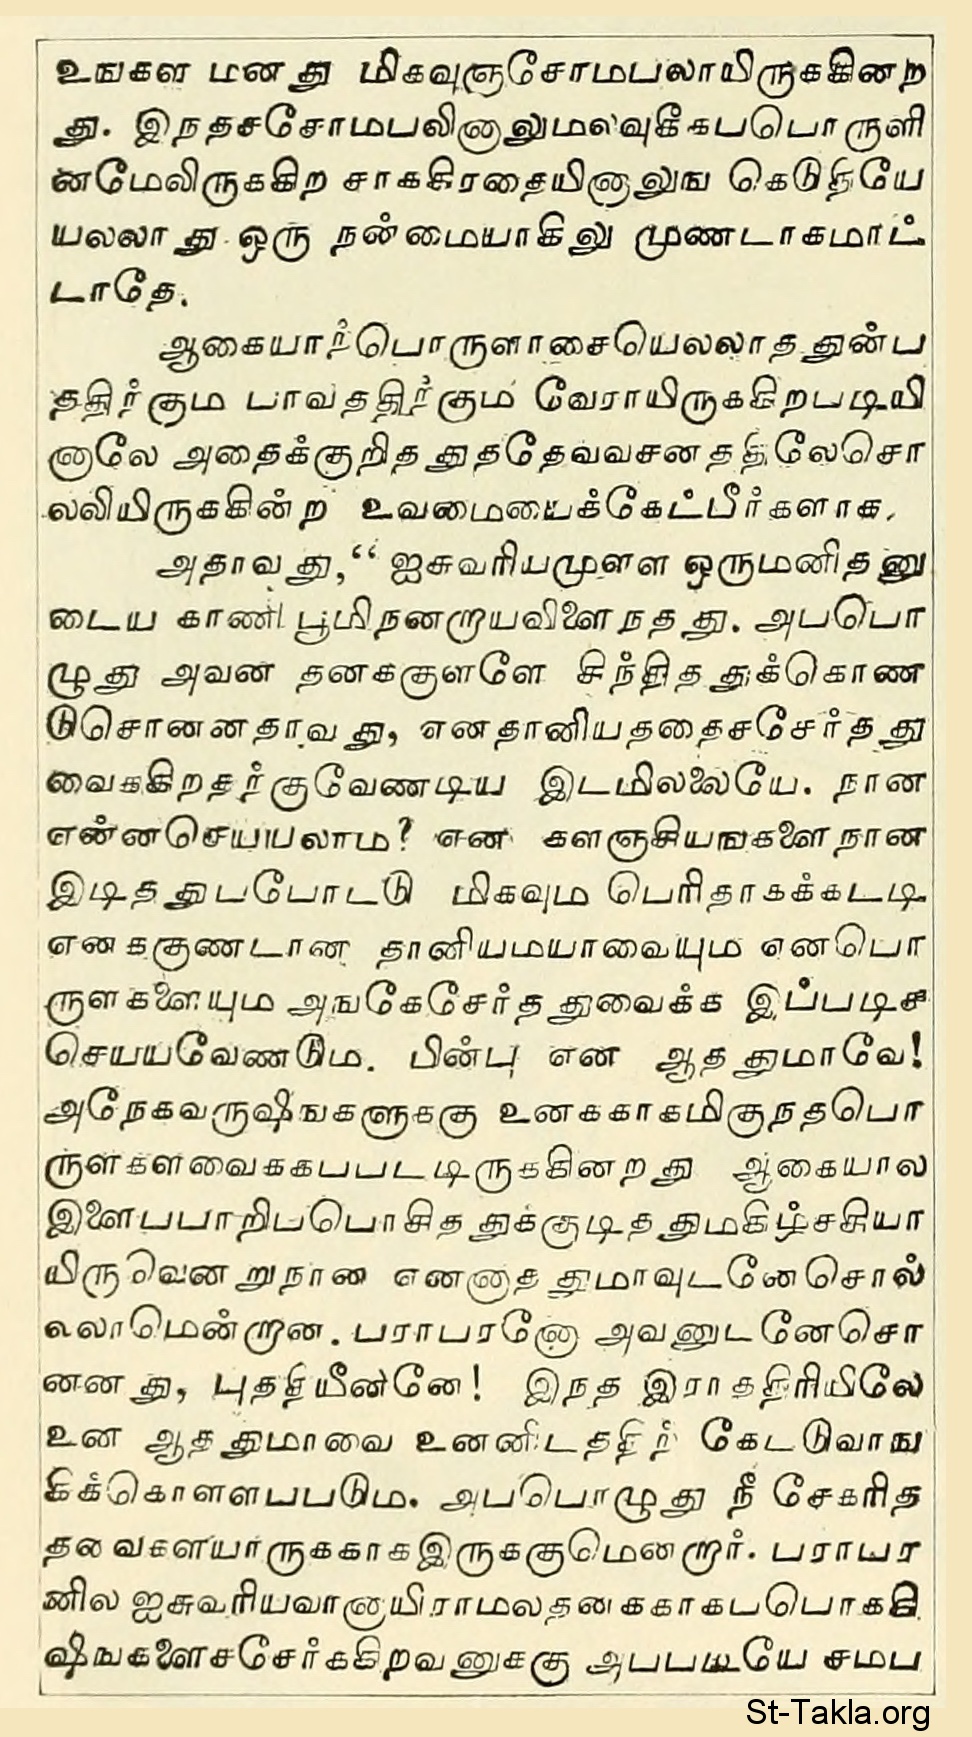 உஙகள மனது மிகவுஞசோமபலாயிருககினற
து. இநதசசோமபலினாலுமலவுகீகபபொருளி
னமேலிருககிற சாககிரதையினாலுங கெடுதியே
யலலாது ஒரு நன்மையாகிலு முணடாகமாட்
டாதே.
ஆகையாற்பொருளாசையெலலாத துன்ப
ததிர்கும பாவததிர்கும வேராயிருககிறபடியி
னாலே அதைக்குறித துததேவவசனததிலேசொ
லலியிருககின்ற உவமையைக்கேட்பீர்களாக.
அதாவது,“ ஐசுவரியமுளள ஒருமனிதனு
டைய காணி பூமிநனறாயவிளைநதது. அபபொ
ழுது அவன தனககுளளே சிந்தித துக்கொண
டுசொனனதாவது, எனதானியததைசசேர்தது
வைககிறதர்குவேணடிய இடமிலலையே. நான
என்னசெயயலாம? என களஞசியஙகளைநான
இடிததுபபோடடு மிகவும பெரிதாகக்கடடி
எனககுணடான தானியமயாவையும எனபொ
ருளகளையும அஙகேசேர்த துவைக்க இப்படிச
செயயவேணடும. பின்பு என ஆத துமாவே!
அநேகவருஷஙகளுககு உனககாகமிகுநதபொ
ருளகளவைககபபடடிருககினறது ஆகையால
இளைபபாறிபபொசித துக்குடித துமகிழ்சசியா
யிருவெனறுநான எனனாத துமாவுடனேசொல்
லலாமென்றான. பராபரனோ அவனுடனேசொ
னனது, புததியீனனே! இநத இராததிரியிலே
உன ஆத துமாவை உனனிடததிர் கேடடுவாங
கிக்கொளளபபடும. அபபொழுது நீ சேகரித
தவைகளயார்ருககாகஇருககுமெனறார். பராபர
னில ஐசுவரியவானாயிராமலதனககாகபபொககி
ஷஙகளைசசேர்ககிறவனுககு அபபடியே சமப
St-Takla.org